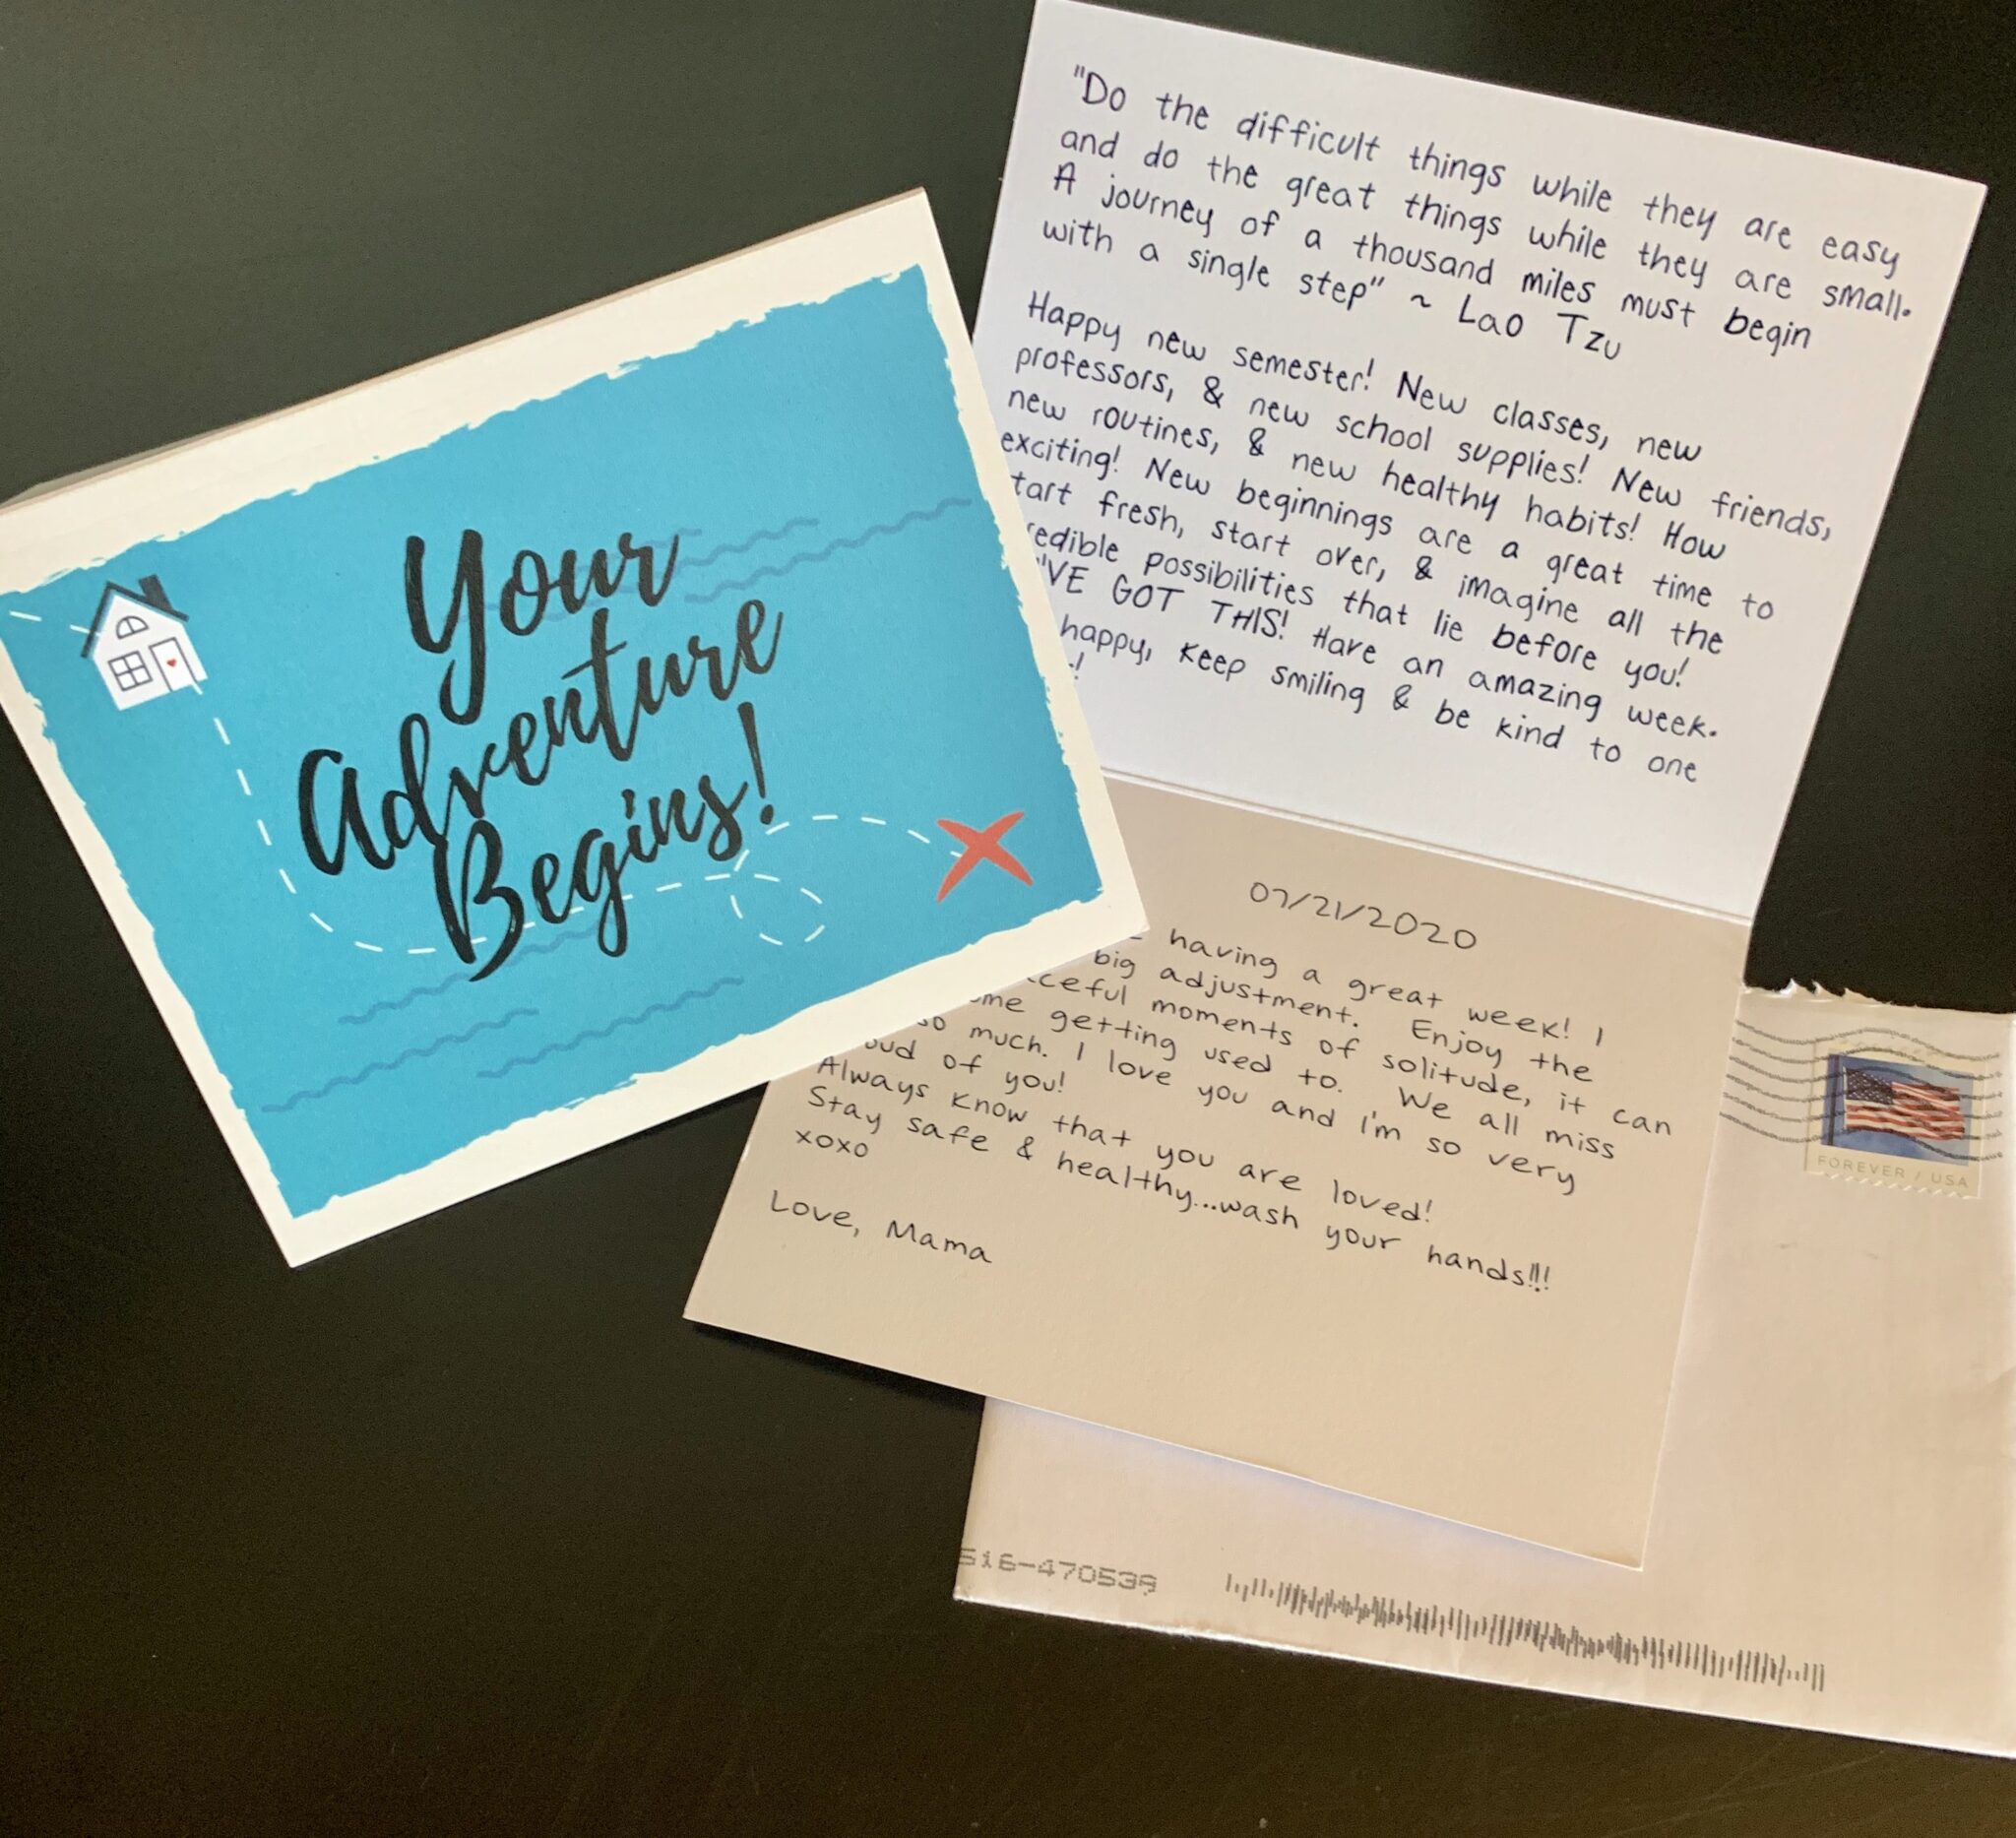 Your
Adventure
Begins!
"Do the difficult things while they are easy
and do the great things while they are small.
A journey of a thousand miles must begin
with a single step" ~ Lao Tzu
Happy new semester! New classes, new
professors, & new school supplies! New friends,
new routines, & new healthy habits! How
exciting! New beginnings are a great time to
tart fresh, start over, & imagine all the
redible possibilities that lie before you!
'VE GOT THIS! Have an amazing week.
happy, keep smiling & be kind to one
07/21/2020
having a great week! I
big adjustment. Enjoy the
ceful moments of solitude, it can
me getting used to. We all miss
so much. I love you and I'm so very
oud of you!
Always know that you are loved!
Stay safe & healthy...wash your hands!!!
xoxo
Love, Mama
FOREVER / USA
516-470539